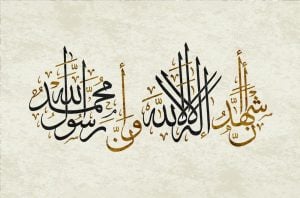 أشهد أن لا إله إلا الله وأن محمد رسول الله